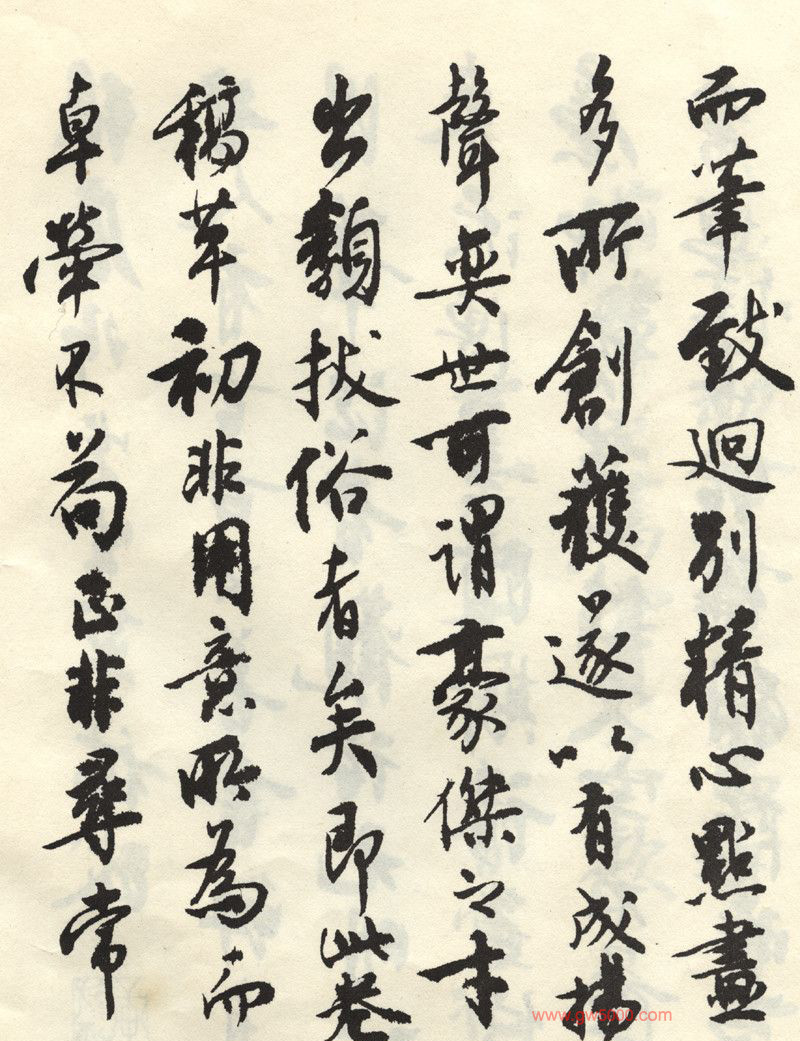 而筆致迥别精心點畫
多所創穫遂以有成揚
聲奕世可謂豪傑之才
出類拔俗者矣即此卷
稿草初非用意所為而
卓犖不苟正非尋常
www.gw5000.com